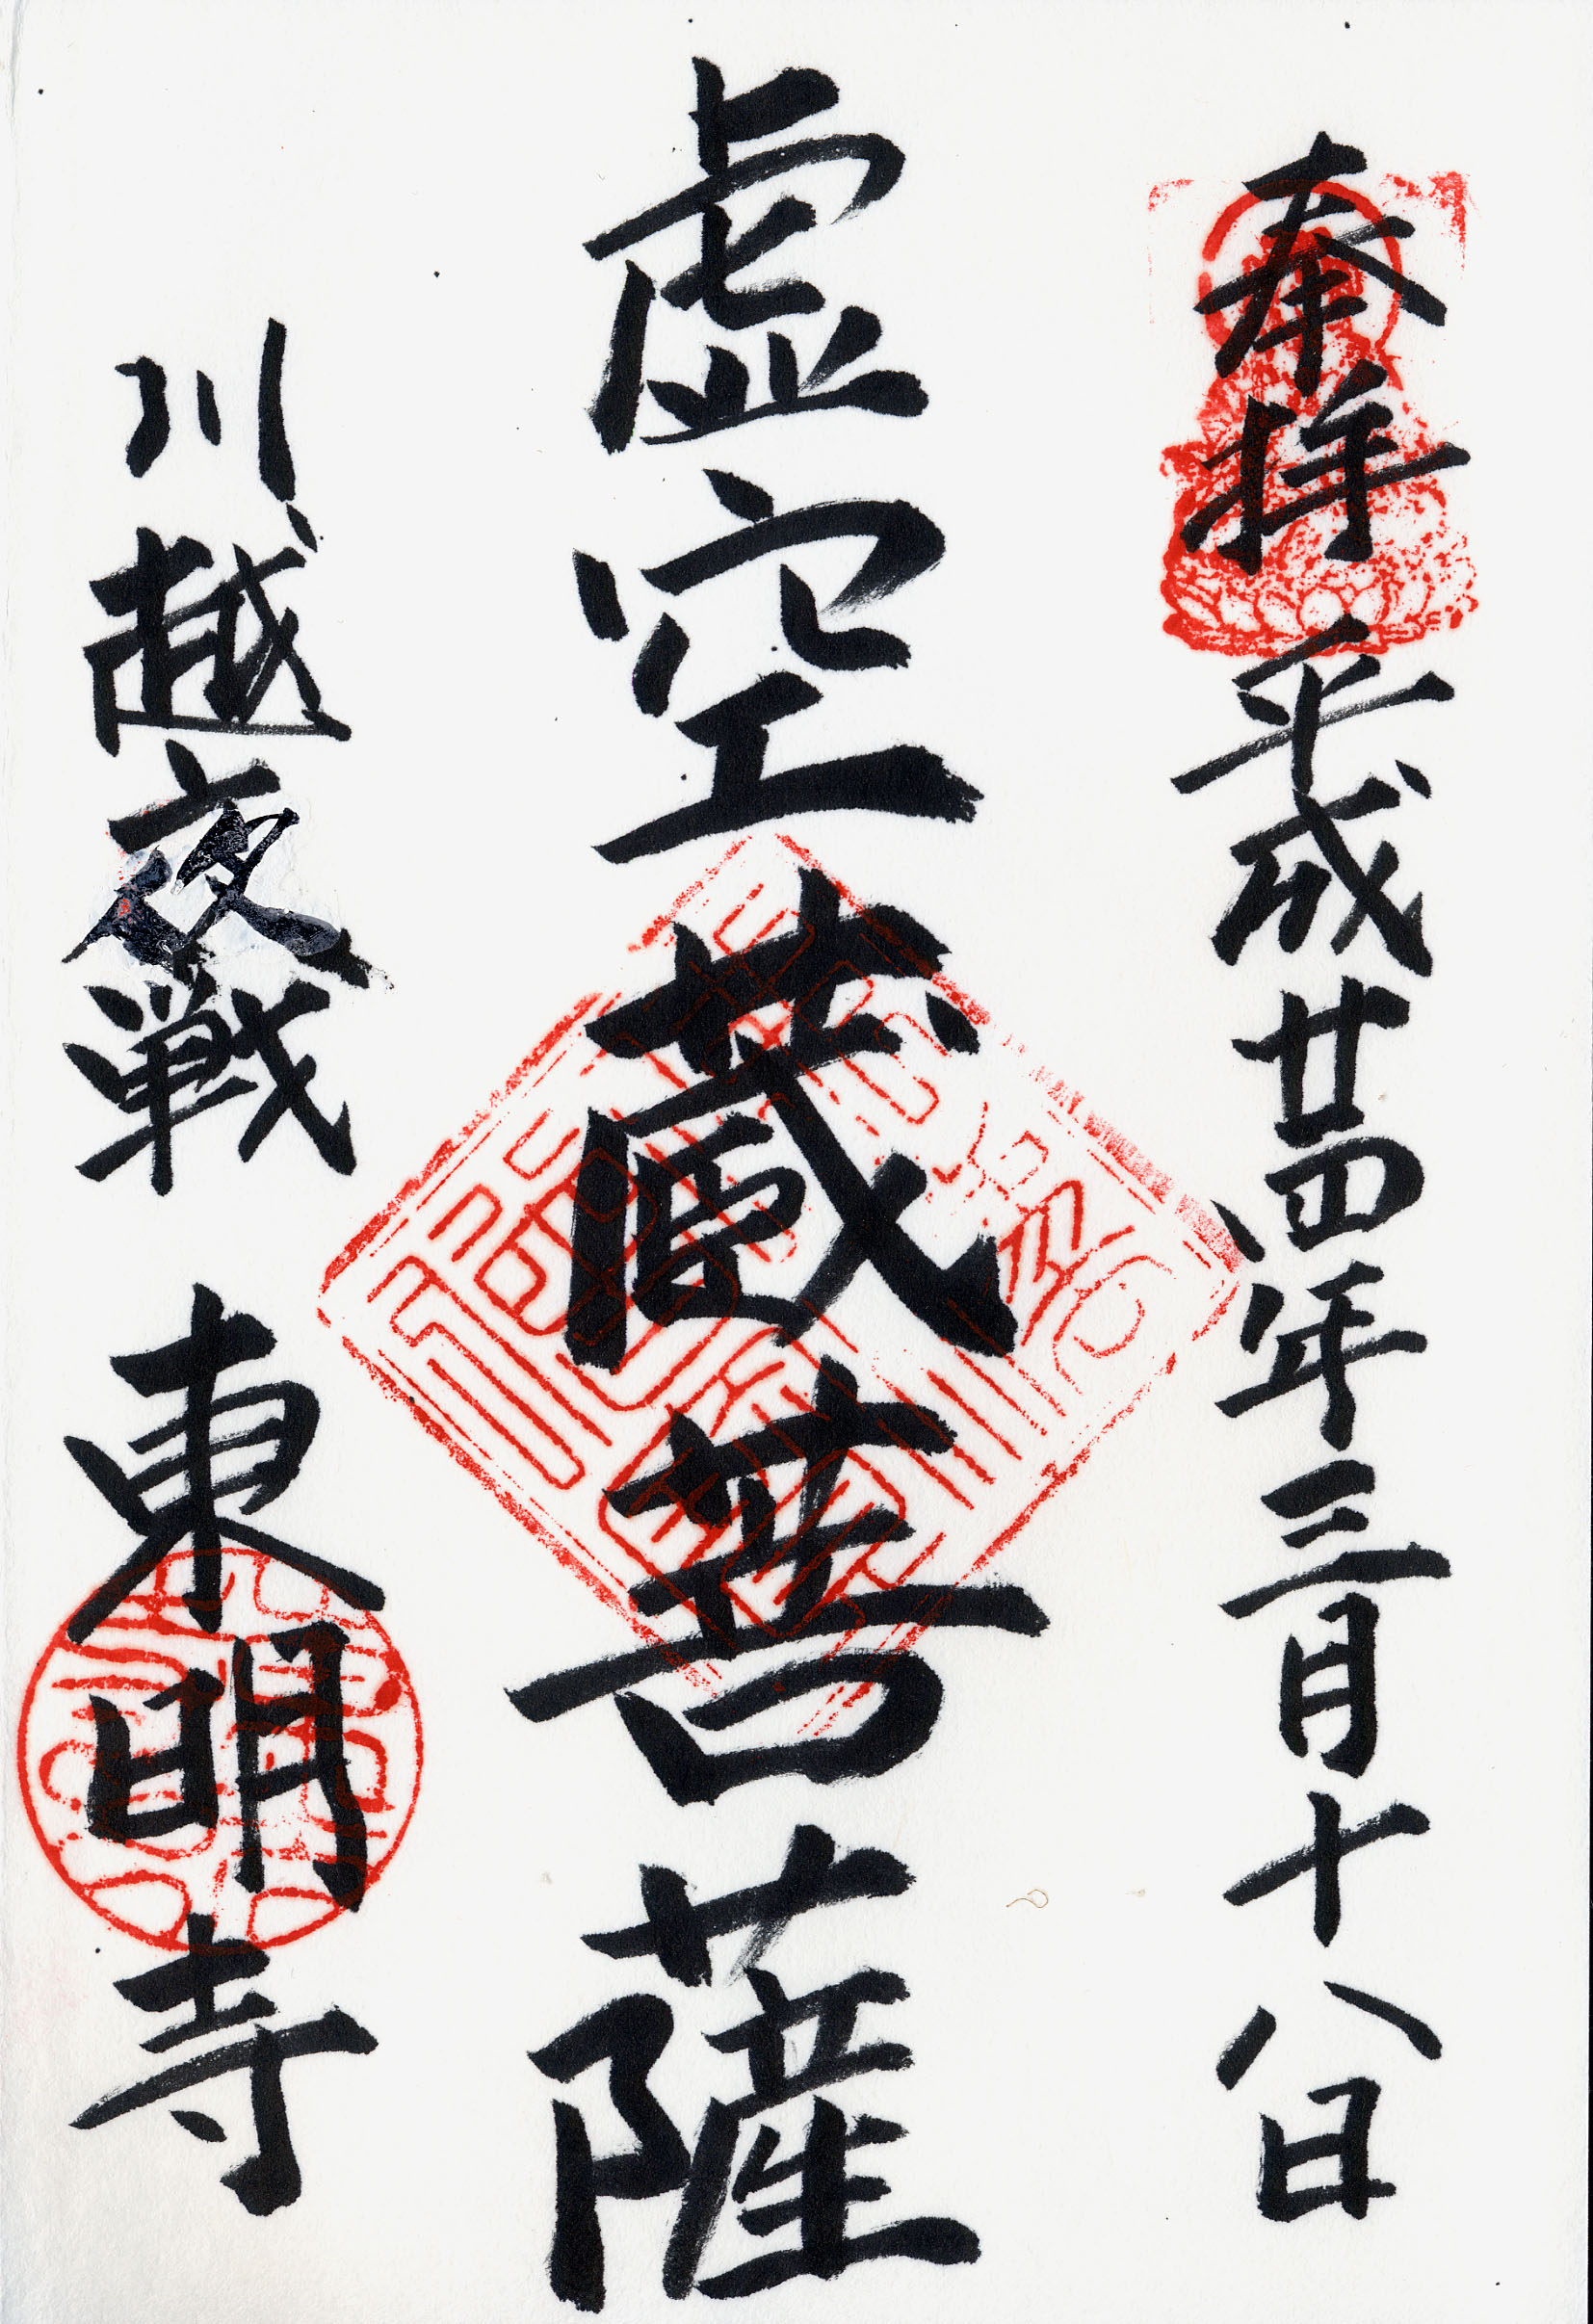 奉拝 平成廿四年三月十八日
虚空蔵菩薩
川越夜戦 東明寺